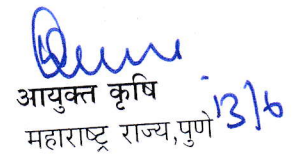 आयुक्त कृषि
महाराष्ट्र राज्य,पुणे 13/6